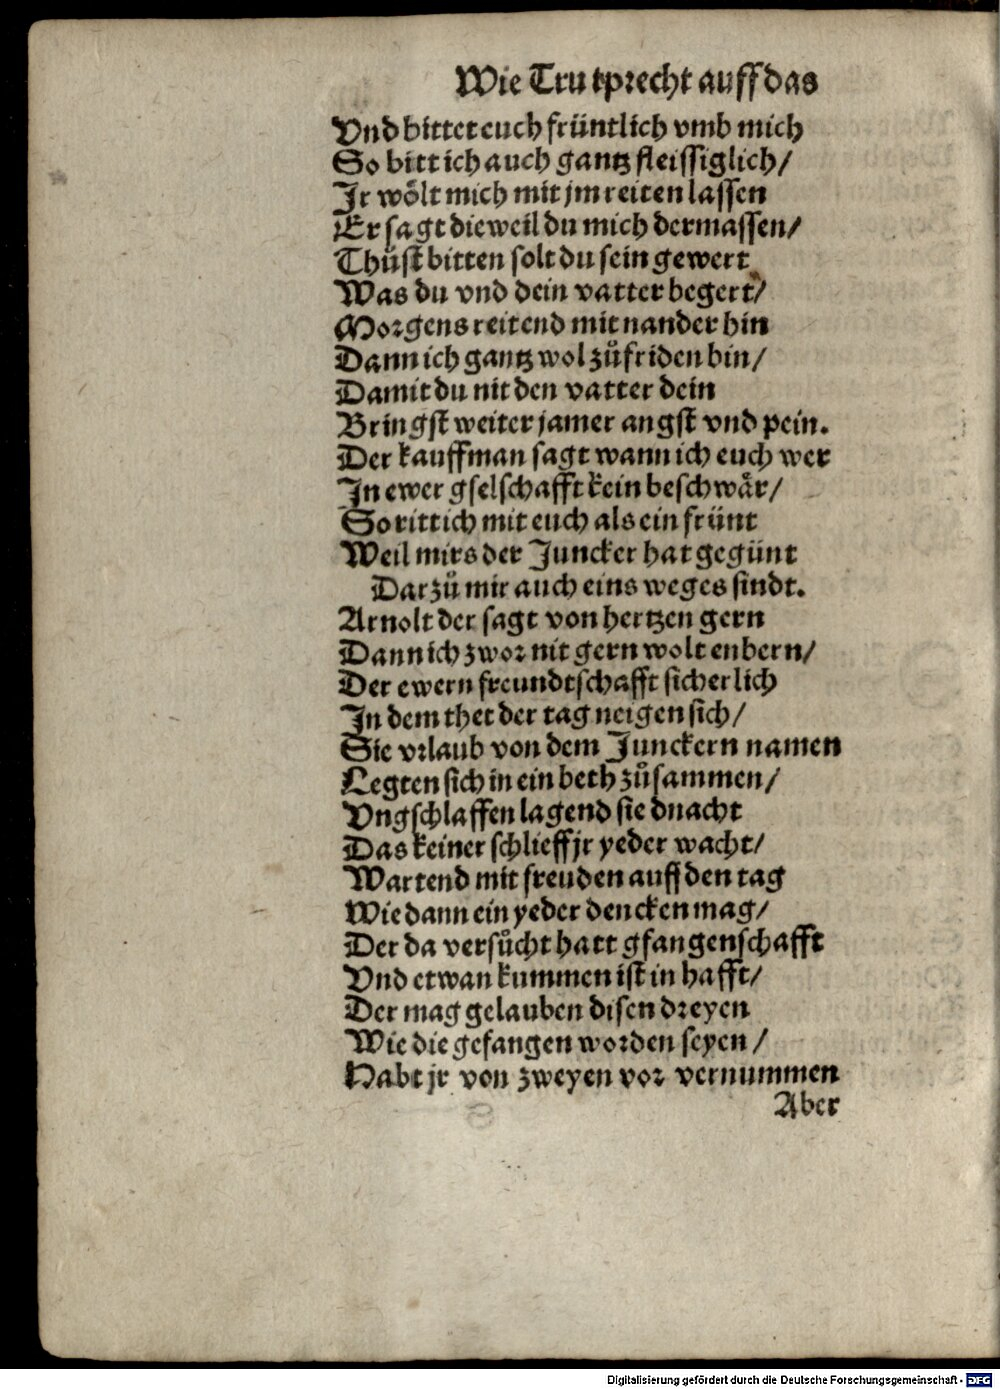 Wie Trutprecht auff das
Vnd bittet euch früntlich vmb mich
So bitt ich auch gantz fleissiglich/
Jr woͤlt mich mit jm reiten lassen
Er sagt dieweil du mich dermassen/
Thuͤst bitten solt du sein gewert
Was du vnd dein vatter begert/
Morgens reitend mit nander hin
Dann ich gantz wol zuͦ friden bin/
Damit du nit den vatter dein
Bringst weiter jamer angst vnd pein.
Der kauffman sagt wann ich euch wer
Jn ewer gselschafft kein beschwaͤr/
So ritt ich mit euch als ein frünt
Weil mirs der Juncker hat gegünt
Darzuͦ mir auch eins weges sindt.
Arnolt der sagt von hertzen gern
Dann ich zwor nit gern wolt enbern/
Der ewern freundtschafft sicherlich
Jn dem thet der tag neigen sich/
Sie vrlaub von dem Junckern namen
Legten sich in ein beth zuͦsammen/
Vngschlaffen lagend sie dnacht
Das keiner schlieff jr yeder wacht/
Wartend mit freuden auff den tag
Wie dann ein yeder dencken mag/
Der da versuͦcht hatt gfangenschafft
Vnd etwan kummen ist in hafft/
Der mag gelauben disen dreyen
Wie die gefangen worden seyen/
Habt jr von zweyen vor vernummen
Aber
Digitalisierung gefördert durch die Deutsche Forschungsgemeinschaft - DFG